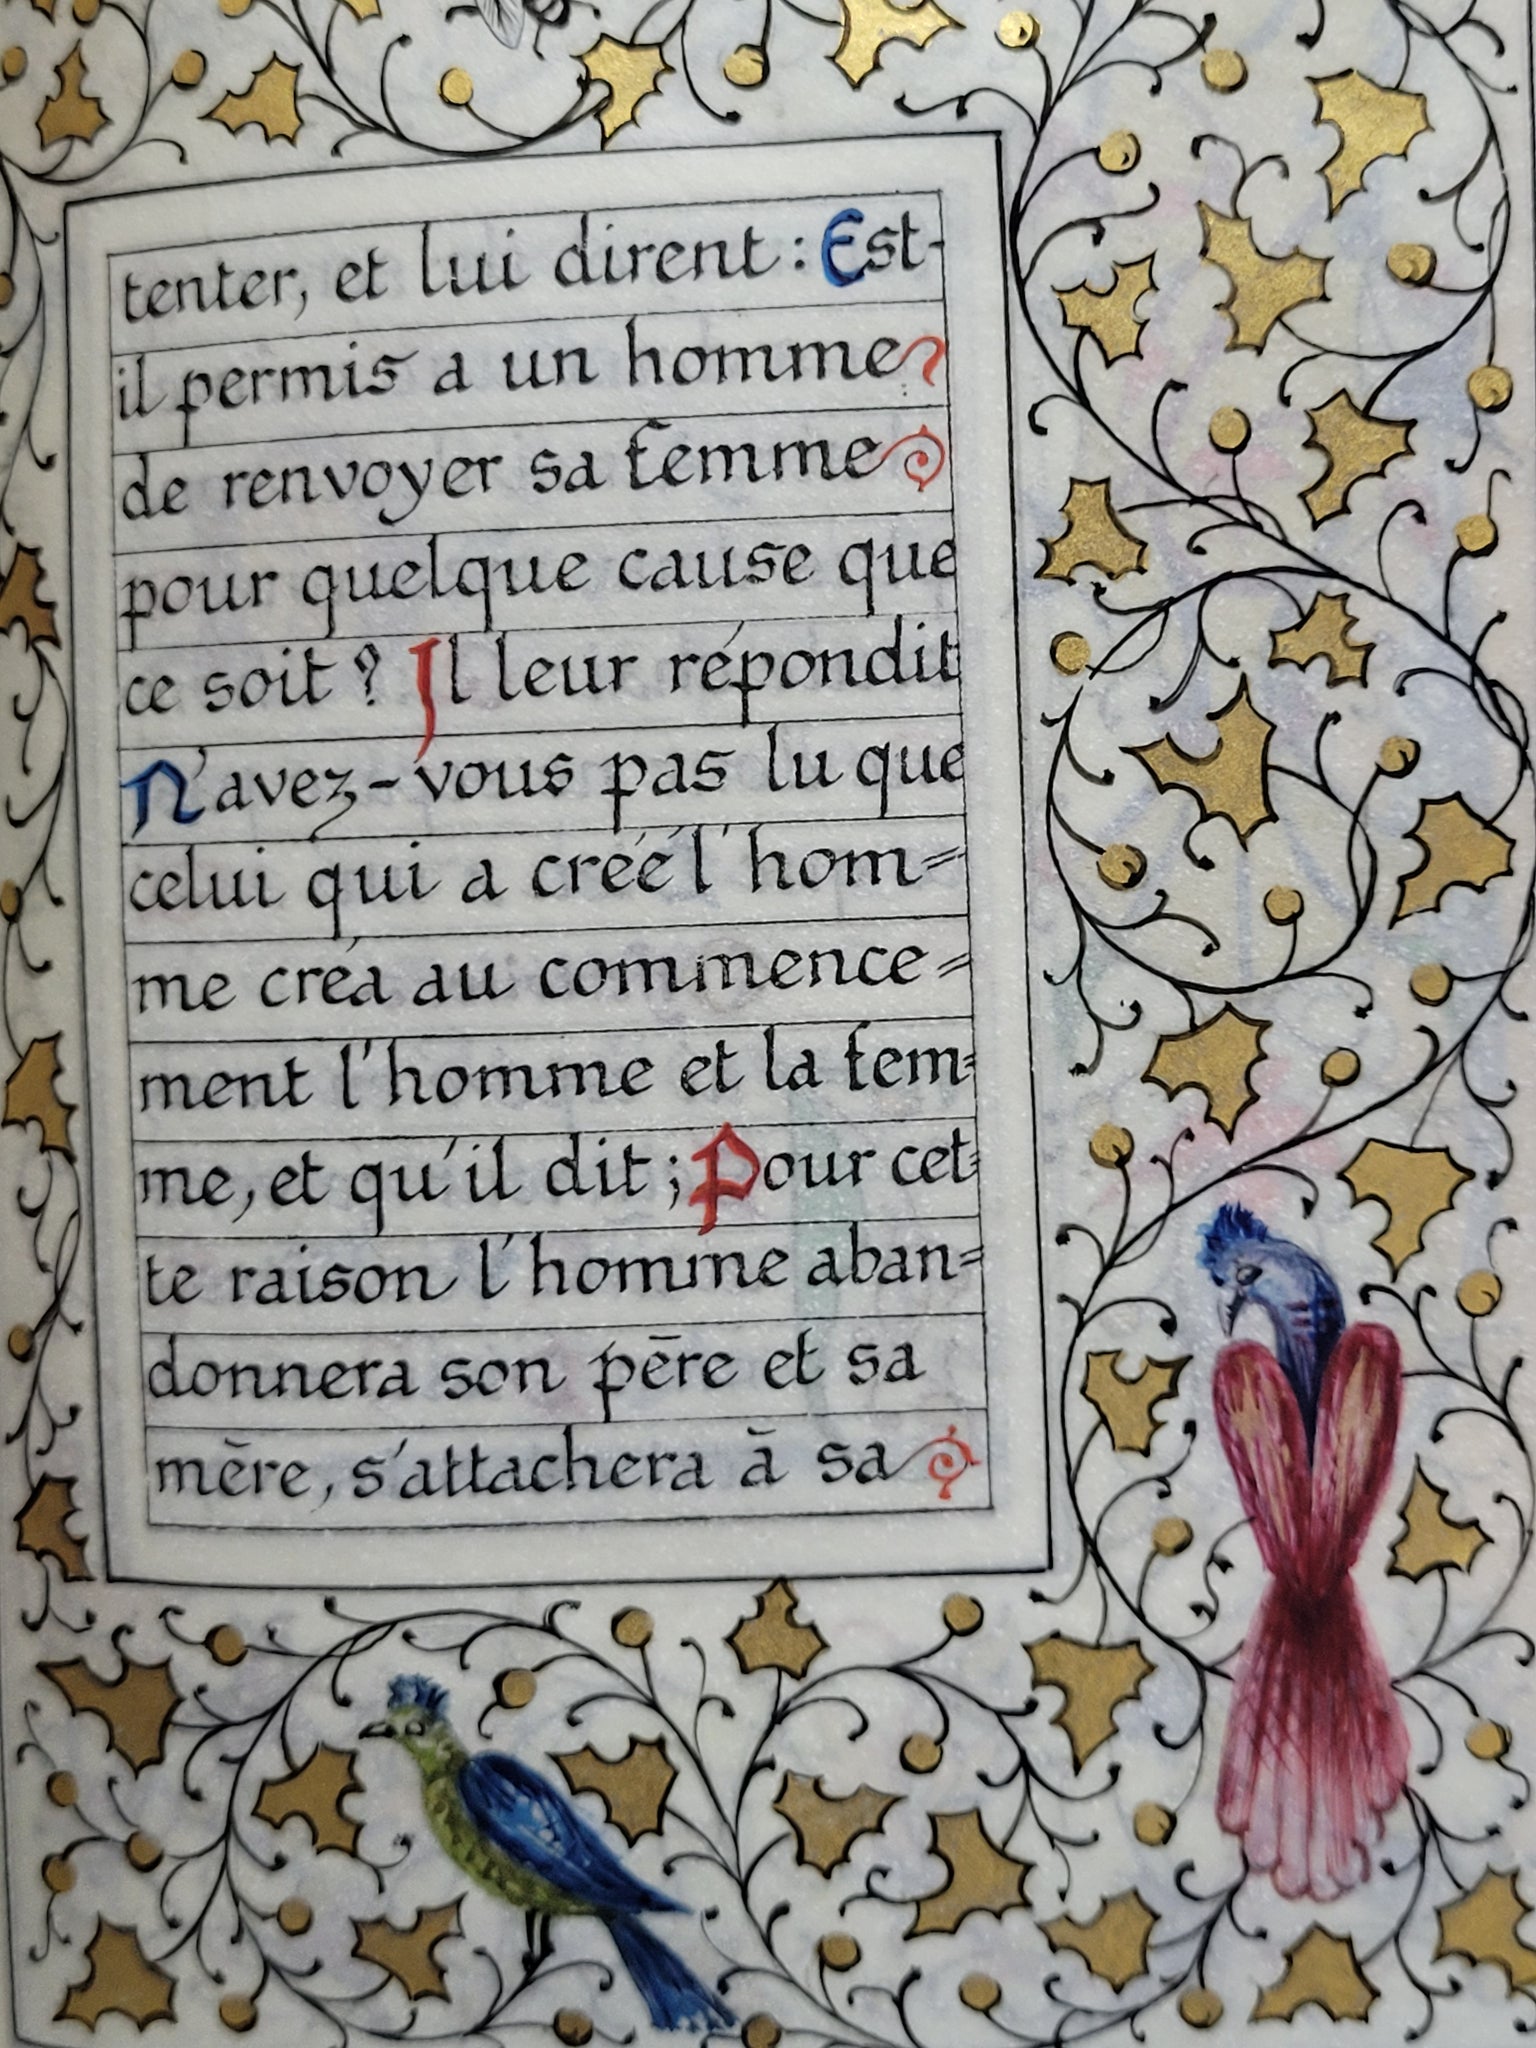 tenter, et lui dirent : Est-
il permis a un homme
de renvoyer sa femme
pour quelque cause que
ce soit ? Il leur répondit
N'avez-vous pas lu que
celui qui a créé l'hom=
me créa au commence=
ment l'homme et la fem=
me, et qu'il dit ; Pour cet=
te raison l'homme aban=
donnera son pēre et sa
mēre, s'attachera ā sa